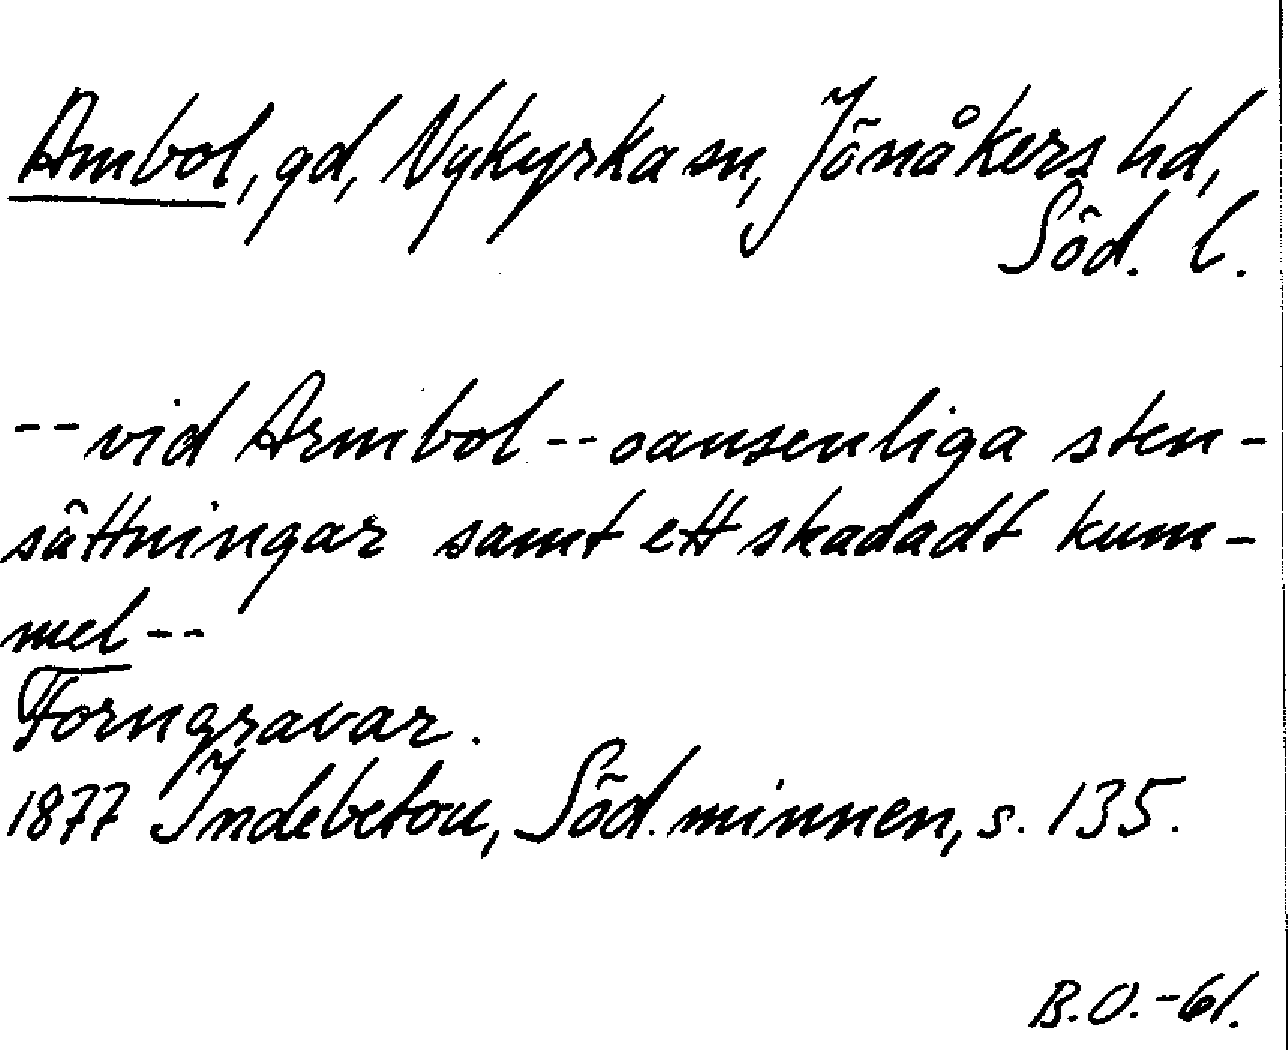 Ambol, gd, Nykyrka sn, Jönåkers hd,
Söd. l.
-- vid Armbol -- oansenliga sten-
sättningar samt ett skadadt kum-
mel --
Forngravar.
1877 Indebetou, Söd. minnen, s. 135.
B.O. -61.